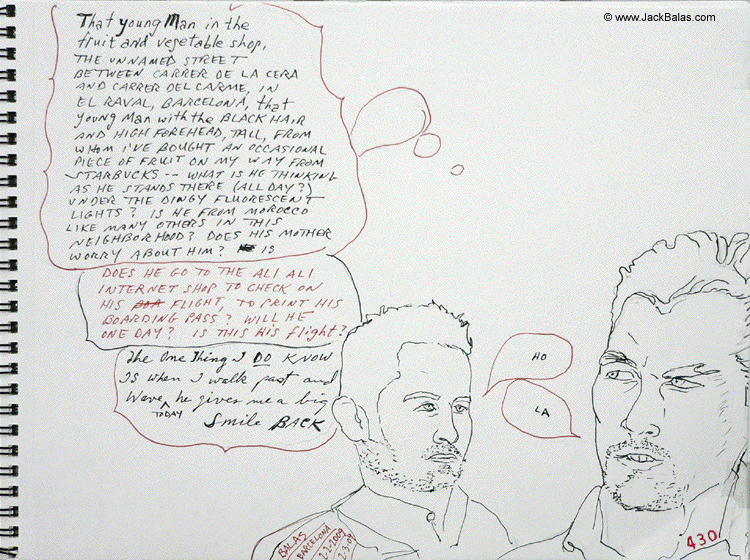 © www.JackBalas.com
That young Man in the
fruit and vegetable shop,
THE UNNAMED STREET
BETWEEN CARRER DE LA CERA
AND CARRER DEL CARME, IN
EL RAVAL, BARCELONA, that
young Man with the BLACK HAIR
AND HIGH FOREHEAD, TALL, FROM
WHOM I'VE BOUGHT AN OCCASIONAL
PIECE OF FRUIT ON MY WAY FROM
STARBUCKS -- WHAT IS HE THINKING
AS HE STANDS THERE (ALL DAY?)
UNDER THE DINGY FLUORESCENT
LIGHTS? IS HE FROM MOROCCO
LIKE MANY OTHERS IN THIS
NEIGHBORHOOD? DOES HIS MOTHER
WORRY ABOUT HIM? IS
DOES HE GO TO THE ALI ALI
INTERNET SHOP TO CHECK ON
HIS FLIGHT, TO PRINT HIS
BOARDING PASS? WILL HE
ONE DAY? IS THIS HIS flight?
The One Thing I DO KNOW
IS when I walk past and
Wave, he gives me a big
TODAY
Smile BACK
HO
LA
BALAS
BARCELONA
2-2-2009
2-3-09
430